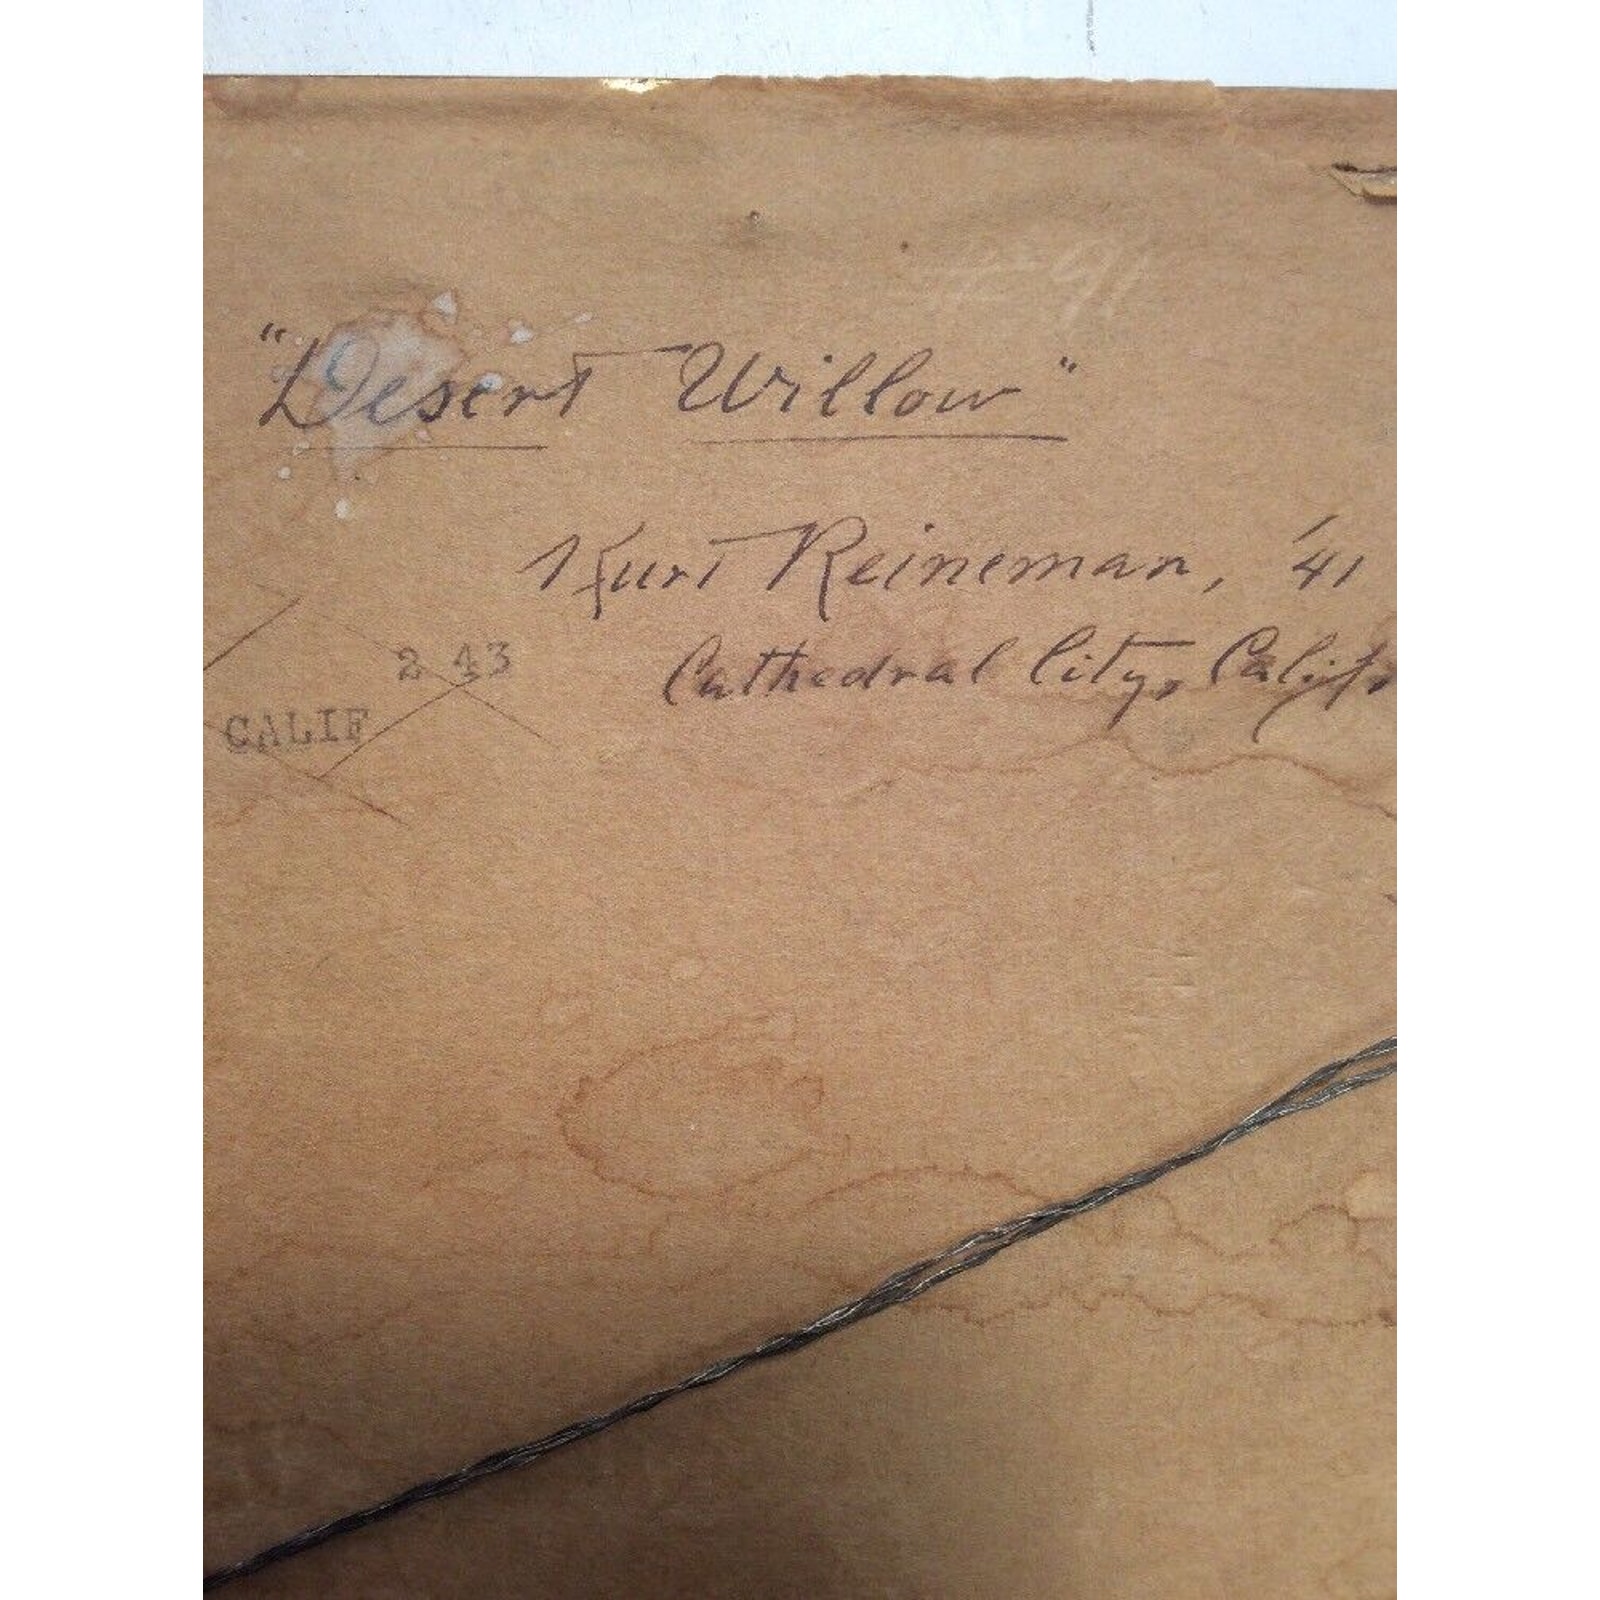 "Desert Willow"
Kurt Reineman, '41
Cathedral City, Calif.
2 43
CALIF